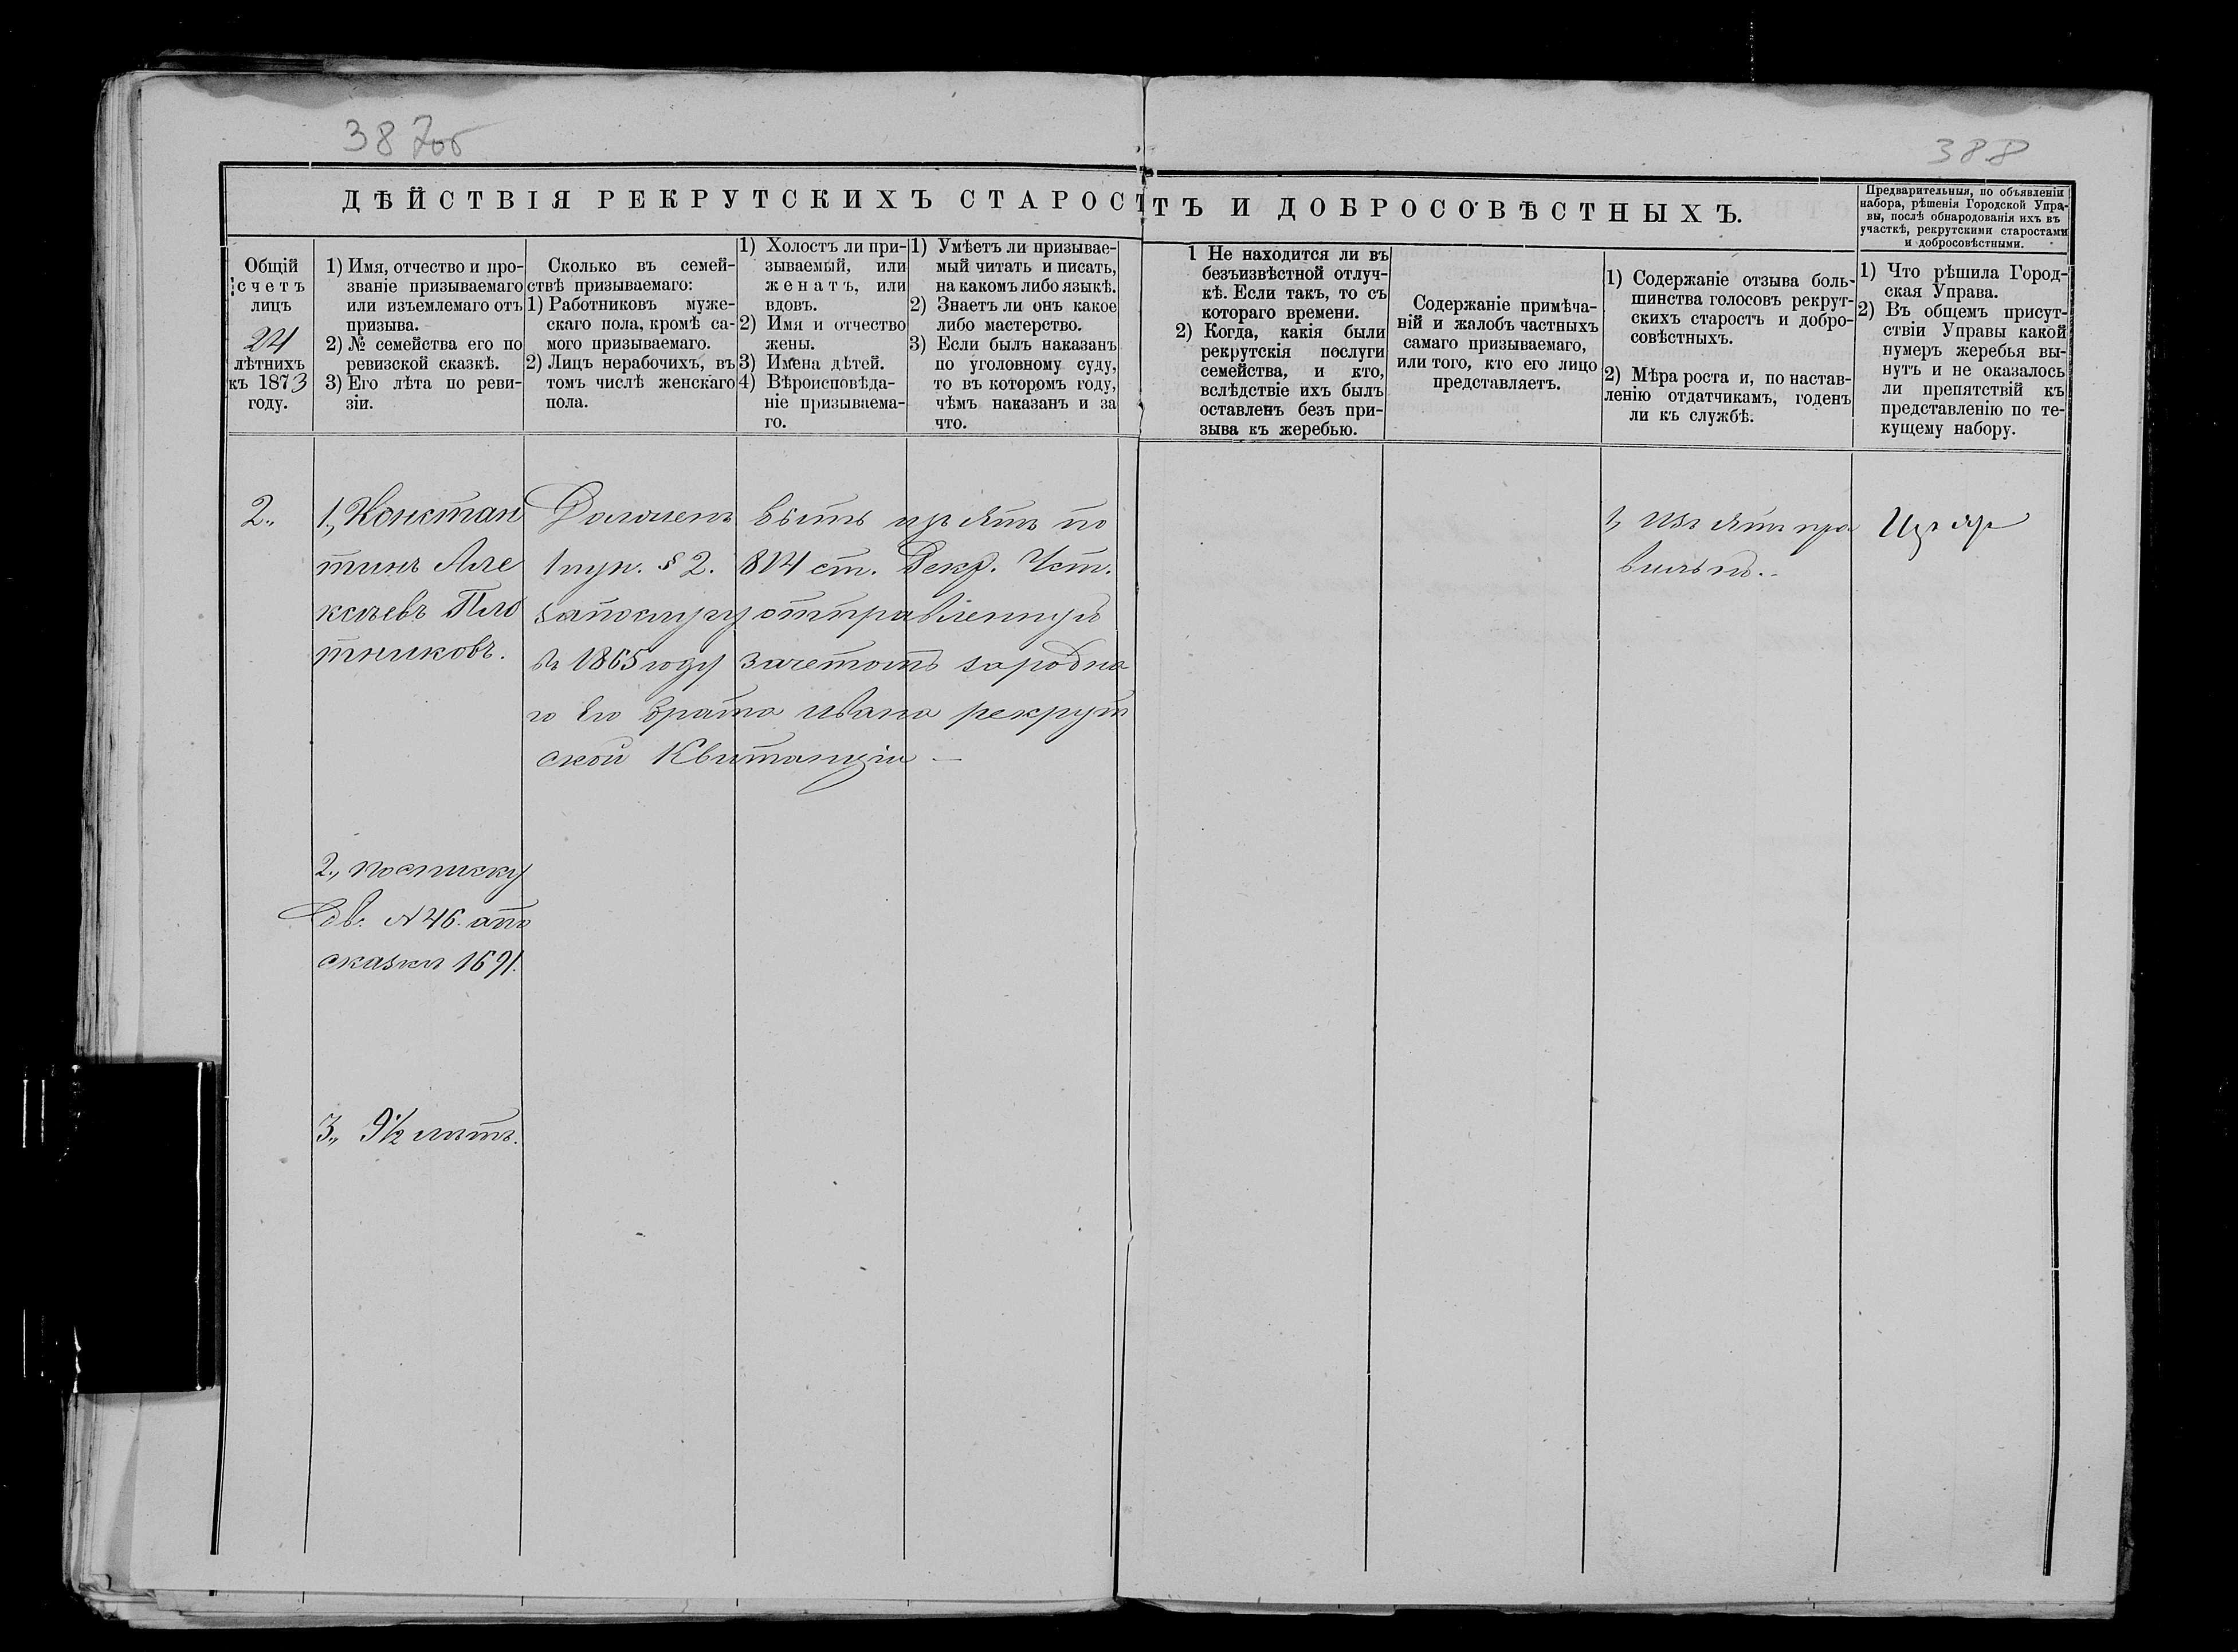 387об
388
ДѢЙСТВІЯ РЕКРУТСКИХЪ СТАРОСТЪ И ДОБРОСОВѢСТНЫХЪ.
Предварительныя, по объявленіи
набора, рѣшенія Городской Упра-
вы, послѣ обнародованія ихъ въ
участкѣ, рекрутскими старостами
и добросовѣстными.
Общій
счетъ
лицъ
21
лѣтнихъ
къ 1873
году.
1) Имя, отчество и про-
званіе призываемаго
или изъемлемаго отъ
призыва.
2) № семейства его по
ревизской сказкѣ.
3) Его лѣта по реви-
зіи.
Сколько въ семей-
ствѣ призываемаго:
1) Работниковъ муже-
скаго пола, кромѣ са-
мого призываемаго.
2) Лицъ нерабочихъ, въ
томъ числѣ женскаго
пола.
1) Холостъ ли при-
зываемый, или
женатъ, или
вдовъ.
2) Имя и отчество
жены.
3) Имена дѣтей.
4) Вѣроисповѣда-
ніе призываема-
го.
1) Умѣетъ ли призывае-
мый читать и писать,
на какомъ либо языкѣ.
2) Знаетъ ли онъ какое
либо мастерство.
3) Если былъ наказанъ
по уголовному суду,
то въ которомъ году,
чѣмъ наказанъ и за
что.
1 Не находится ли въ
безъизвѣстной отлуч-
кѣ. Если такъ, то съ
котораго времени.
2) Когда, какія были
рекрутскія послуги
семейства, и кто,
вслѣдствіе ихъ былъ
оставленъ безъ при-
зыва къ жеребью.
Содержаніе примѣча-
ній и жалобъ частныхъ
самаго призываемаго,
или того, кто его лицо
представляетъ.
1) Содержаніе отзыва боль-
шинства голосовъ рекрут-
скихъ старостъ и добро-
совѣстныхъ.
2) Мѣра роста и, по настав-
ленію отдатчикамъ, годенъ
ли къ службѣ.
1) Что рѣшила Город-
ская Управа.
2) Въ общемъ присут-
ствіи Управы какой
нумеръ жеребья вы-
нутъ и не оказалось
ли препятствій къ
представленію по те-
кущему набору.
2.,
1., Констан
тинъ Але
ксѣевъ Пло
тниковъ.
Долженъ быть изъятъ по
1 пун. § 2. 814 ст. Рекр. Уст.
за послугу отправленную
въ 1865 году зачетомъ за родна
го его брата Ивана рекрут
ской Квитанціи —
1, Изъятъ пра
вильно.
Изъят
2., по списку
Дв. №46. а по
сказкѣ 1691.
3., 9½ лѣтъ.